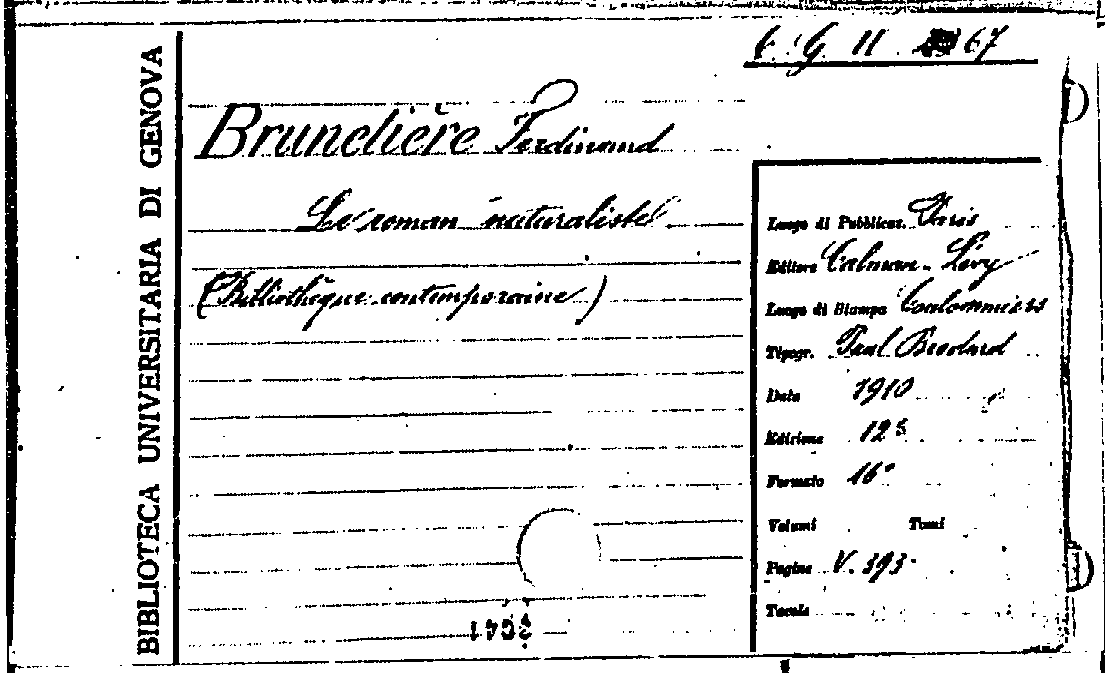 6. G. 11 67
BIBLIOTECA UNIVERSITARIA DI GENOVA
Brunetière Ferdinand
Le roman naturaliste
(Bibliothèque contemporaine)
Luogo di Pubblicaz. Paris
Editore Calman-Lévy
Luogo di Stampa Coulommiers
Tipogr. Paul Brodard
Data 1910
Edizione 12e
Formato 16°
Volumi Tomi
Pagine V. 393
Tavole